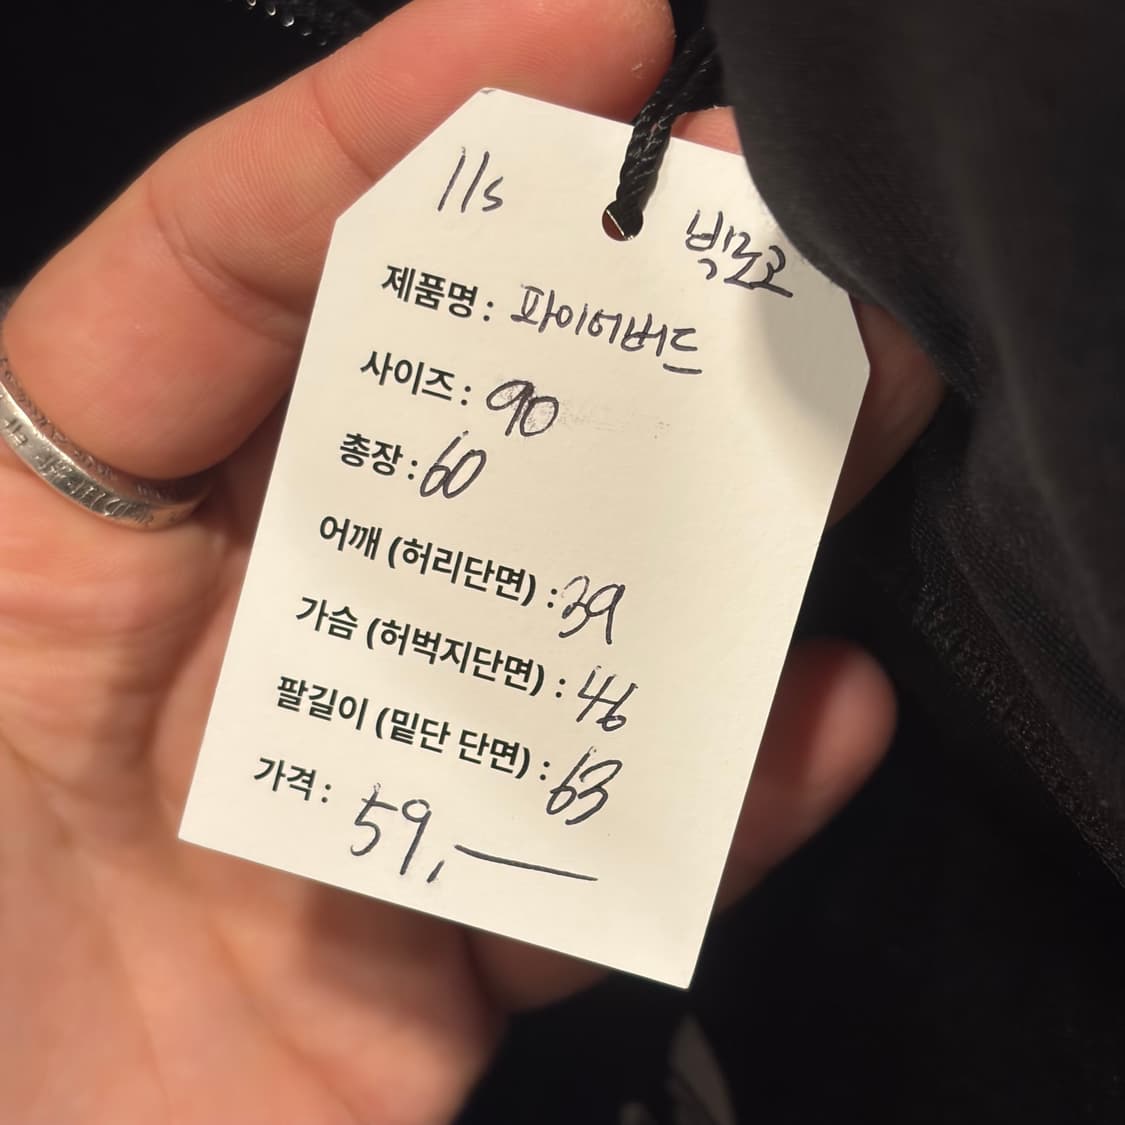 11s
빅로고
제품명 : 파이어버드
사이즈 : 90
총장 : 60
어깨 (허리단면) : 39
가슴 (허벅지단면) : 46
팔길이 (밑단 단면) : 63
가격 : 59,—